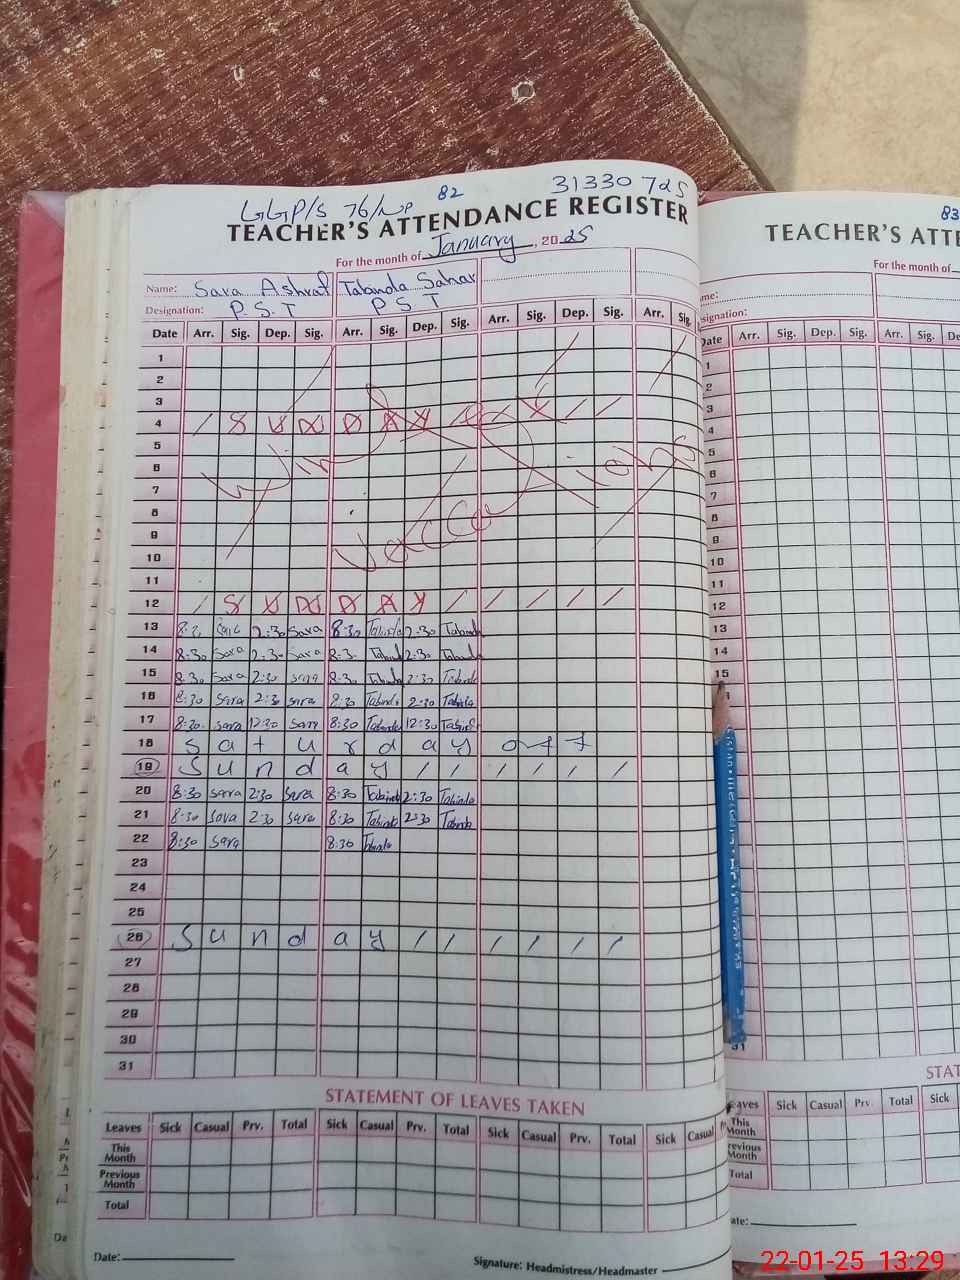 82
GGP/S 76/NP 31330725
TEACHER'S ATTENDANCE REGISTER
For the month of January, 2025
Name: Sara Ashraf Tabinda Sahar
Designation: P.S.T P S T
Date Arr. Sig. Dep. Sig. Arr. Sig. Dep. Sig. Arr. Sig. Dep. Sig. Arr. Sig.
1
2
3
4 / S U N D A Y /
5
6
7
8
9
10
11
Winter Vaccations
12 / S U N D A Y / / / / /
13 2:30 Sara 8:30 2:30
14 8:30 Sara 2:30 Sara 2:30
15 8:30 Sara 2:30 Sara 8:30 2:30 Tabinda
16 8:30 Sara 2:30 Sara 8:30 Tabinda 2:30 Tabinda
17 8:30 Sara 12:30 Sara 8:30 Tabinda 12:30 Tabinda
18 S a t u r d a y off
19 S u n d a y / / / / / /
20 8:30 Sara 2:30 Sara 8:30 Tabinda 2:30 Tabinda
21 8:30 Sara 2:30 Sara 8:30 Tabinda 2:30 Tabinda
22 8:30 Sara 8:30 Tabinda
23
24
25
26 S u n d a y / / / / / /
27
28
29
30
31
STATEMENT OF LEAVES TAKEN
Leaves Sick Casual Prv. Total Sick Casual Prv. Total Sick Casual Prv. Total Sick Casual
This Month
Previous Month
Total
Date:
Signature: Headmistress/Headmaster
83
TEACHER'S ATTE
For the month of
me:
signation:
Date Arr. Sig. Dep. Sig. Arr. Sig. De
1
2
3
4
5
6
7
8
9
10
11
12
13
14
15
31
STAT
eaves Sick Casual Prv. Total Sick
This Month
revious Month
Total
ate:
22-01-25 13:29